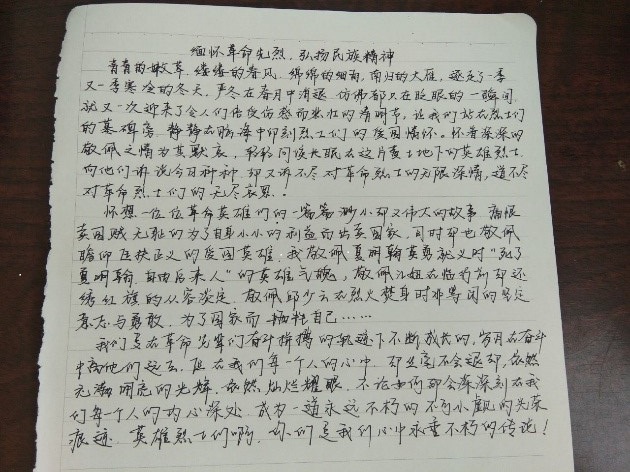 缅怀革命先烈，弘扬民族精神
青青的嫩草，缕缕的春风，绵绵的细雨，南归的大雁，逐走了一季
又一季寒冷的冬天，严冬在春月中消退，仿佛都只在眨眼的一瞬间，
就又一次迎来了令人们倍使伤感而悲壮的清明节，让我们站在烈士们
的墓碑旁，静静在脑海中印刻烈士们的爱国情怀。怀着深深的
敬佩之情为其默哀，轻轻问候长眠在这片黄土地下的英雄烈士，
向他们诉说今日种种，却又讲不尽对革命烈士的无限深情，道不尽
对革命烈士们的无尽哀思。
怀想一位位革命英雄们的一篇篇渺小却又伟大的故事，痛恨
卖国贼无耻的为了自身小小的利益而出卖国家，同时却也敬佩
瞻仰正扶正义的爱国英雄：我敬佩夏明翰英勇就义时“死了
夏明翰，自由后来人”的英雄气魄，敬佩江姐在临刑前却还
绣红旗的从容淡定，敬佩邱少云在烈火焚身时非等闲的坚定
意志与勇敢，为了国家而牺牲自己……
我们是在革命先辈们奋斗拼搏的轨迹下不断成长的，岁月在奋斗
中离他们远去，但在我们每一个人的心中，却坐落不会退却，依然
充满明亮的光辉，依然灿烂耀眼，不论如何都会深深刻在我
们每一个人的内心深处，成为一道永远不朽的不可小觑的光荣
痕迹，英雄烈士们啊，你们是我们心中永垂不朽的传说！